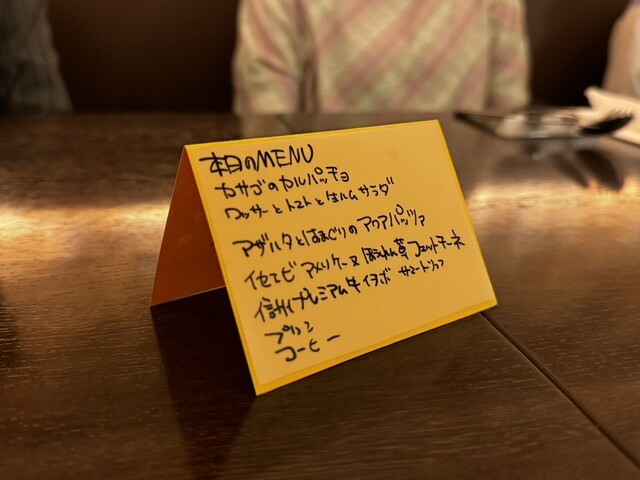 本日のMENU
カサゴのカルパッチョ
ロッサーとトマトと生ハム サラダ
アサハタとはまぐりの アクアパッツァ
イセエビ アメリケーヌ ほうれん草 フェットチーネ
信州プレミアム牛 イチボ サマートリュフ
プリン
コーヒー